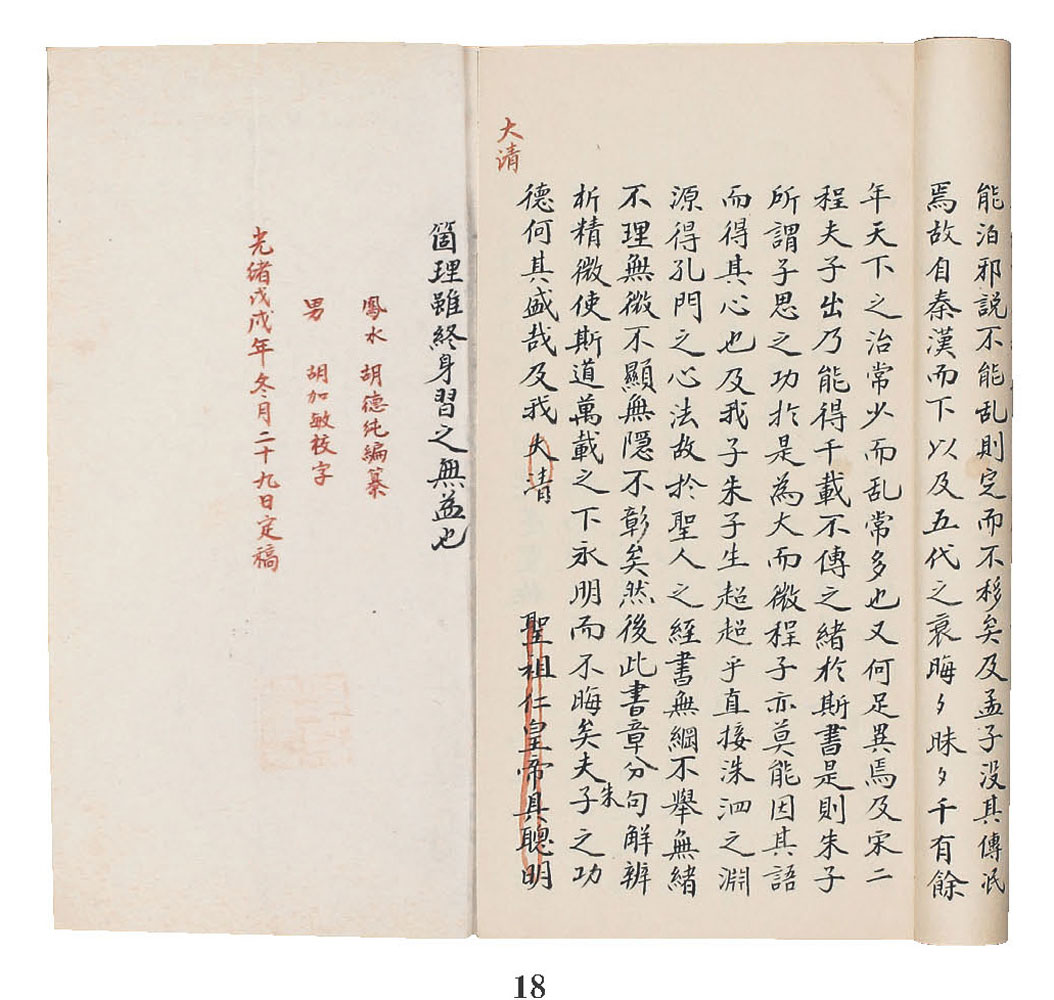 能泊邪說不能乱則定而不移矣及孟子没其傳泯
焉故自秦漢而下以及五代之衰晦〻昧〻千有餘
年天下之治常少而乱常多也又何足異焉及宋二
程夫子出乃能得千載不傳之緒於斯書是則朱子
所謂子思之功於是為大而微程子亦莫能因其語
而得其心也及我子朱子生超超乎直接洙泗之淵
源得孔門之心法故於聖人之經書無綱不舉無緒
不理無微不顯無隠不彰矣然後此書章分句解辨
析精微使斯道萬載之下永明而不晦矣夫朱子之功
德何其盛哉及我大清 聖祖仁皇帝具聰明
大清
箇理雖終身習之無益也
鳳水 胡德純編纂
男 胡加敏校字
光緒戊戌年冬月二十九日定稿
18